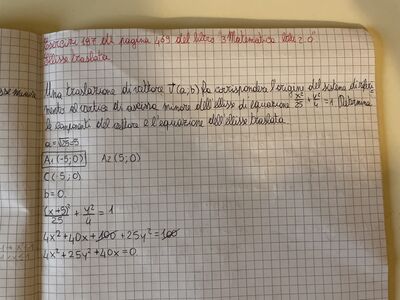 Esercizio 197 di pagina 469 del libro "3 Matematica blu 2.0"
Ellisse traslata
Una traslazione di vettore v⃗(a,b) fa corrispondere l'origine del sistema di riferi-
mento al vertice di ascissa minore dell'ellisse di equazione x²/25 + y²/4 = 1. Determina
le componenti del vettore e l'equazione dell'ellisse traslata.
a = √25 = 5
A₁(-5;0) A₂(5;0)
C(-5;0)
b = 0
(x+5)²/25 + y²/4 = 1
4x² + 40x + 100 + 25y² = 100
4x² + 25y² + 40x = 0